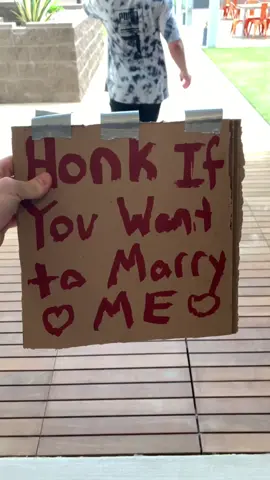 Honk If
You Want
to Marry
♡ ME ♡